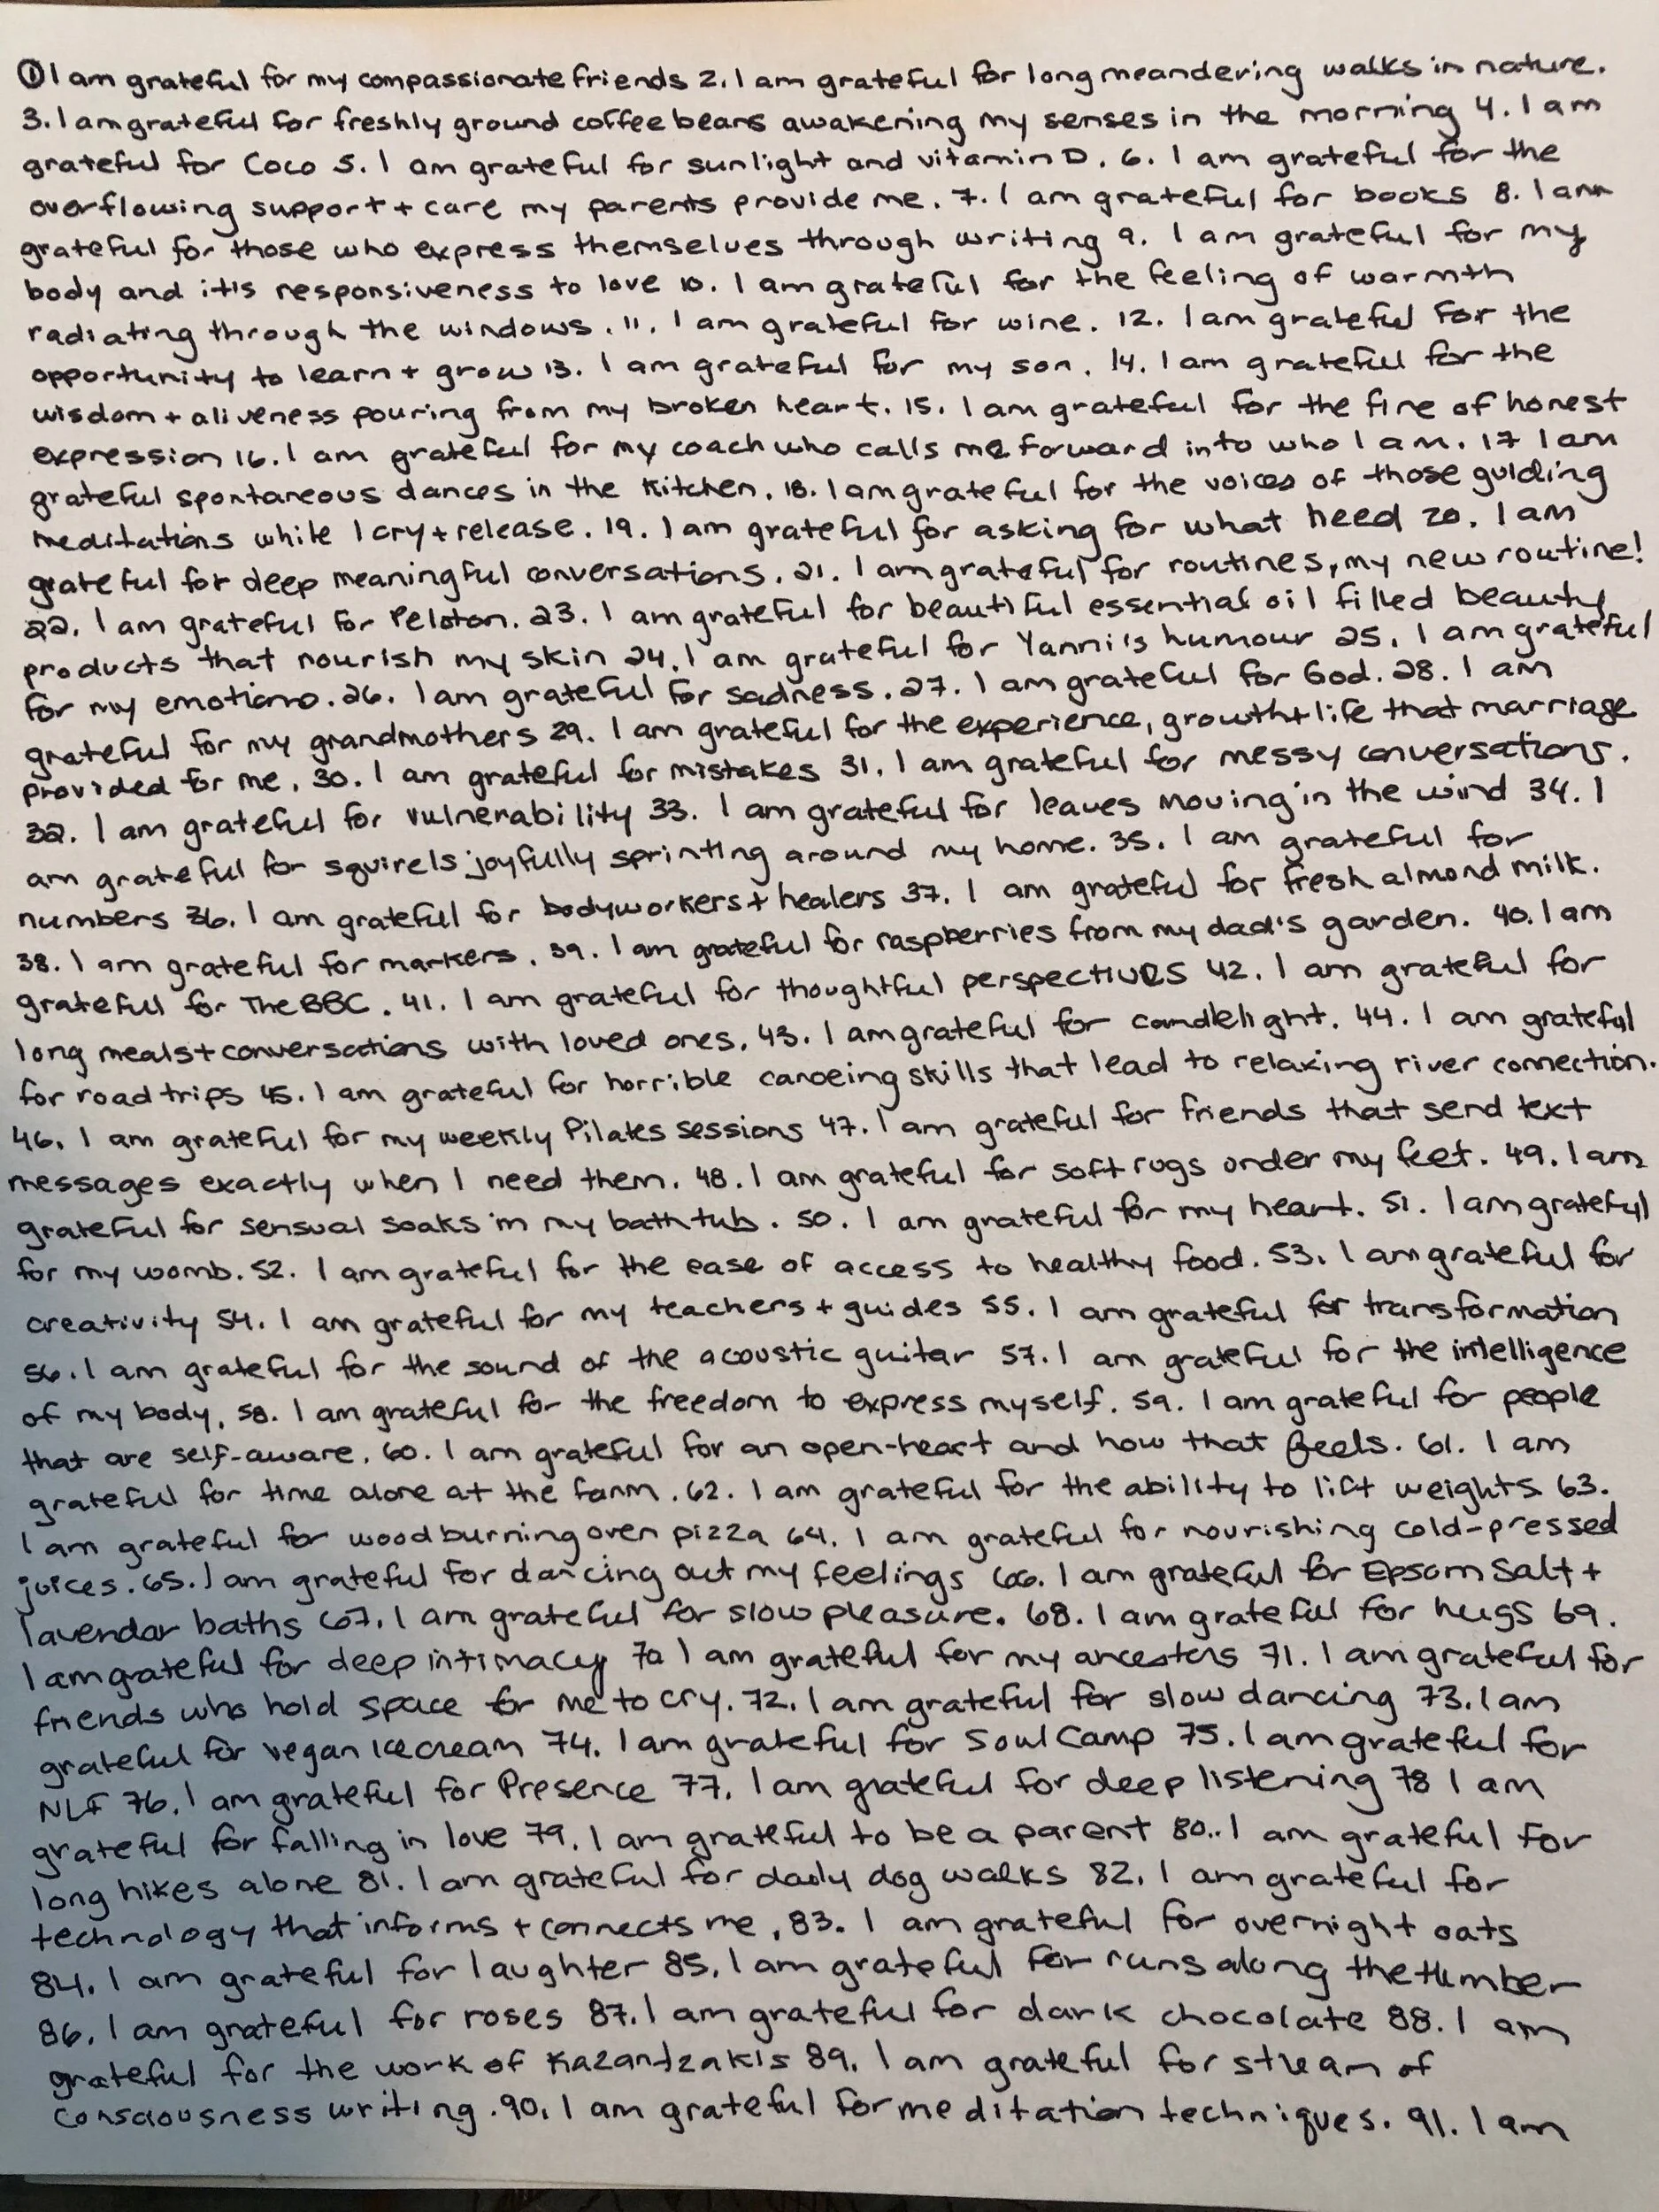 ① I am grateful for my compassionate friends 2. I am grateful for long meandering walks in nature.
3. I am grateful for freshly ground coffee beans awakening my senses in the morning 4. I am
grateful for Coco 5. I am grateful for sunlight and vitamin D. 6. I am grateful for the
overflowing support + care my parents provide me. 7. I am grateful for books 8. I am
grateful for those who express themselves through writing 9. I am grateful for my
body and it's responsiveness to love 10. I am grateful for the feeling of warmth
radiating through the windows. 11. I am grateful for wine. 12. I am grateful for the
opportunity to learn + grow 13. I am grateful for my son. 14. I am grateful for the
wisdom + aliveness pouring from my broken heart. 15. I am grateful for the fire of honest
expression 16. I am grateful for my coach who calls me forward into who I am. 17 I am
grateful spontaneous dances in the kitchen. 18. I am grateful for the voices of those guiding
meditations while I cry + release. 19. I am grateful for asking for what need 20. I am
grateful for deep meaningful conversations. 21. I am grateful for routines, my new routine!
22. I am grateful for Peloton. 23. I am grateful for beautiful essential oil filled beauty
products that nourish my skin 24. I am grateful for Yanni's humour 25. I am grateful
for my emotions. 26. I am grateful for sadness. 27. I am grateful for God. 28. I am
grateful for my grandmothers 29. I am grateful for the experience, growth + life that marriage
provided for me. 30. I am grateful for mistakes 31. I am grateful for messy conversations.
32. I am grateful for vulnerability 33. I am grateful for leaves moving in the wind 34. I
am grateful for squirels joyfully sprinting around my home. 35. I am grateful for
numbers 36. I am grateful for bodyworkers + healers 37. I am grateful for fresh almond milk.
38. I am grateful for markers. 39. I am grateful for raspberries from my dad's garden. 40. I am
grateful for The BBC. 41. I am grateful for thoughtful perspectives 42. I am grateful for
long meals + conversations with loved ones. 43. I am grateful for candlelight. 44. I am grateful
for road trips 45. I am grateful for horrible canoeing skills that lead to relaxing river connection.
46. I am grateful for my weekly Pilates sessions 47. I am grateful for friends that send text
messages exactly when I need them. 48. I am grateful for soft rugs under my feet. 49. I am
grateful for sensual soaks in my bath tub. 50. I am grateful for my heart. 51. I am grateful
for my womb. 52. I am grateful for the ease of access to healthy food. 53. I am grateful for
creativity 54. I am grateful for my teachers + guides 55. I am grateful for transformation
56. I am grateful for the sound of the acoustic guitar 57. I am grateful for the intelligence
of my body. 58. I am grateful for the freedom to express myself. 59. I am grateful for people
that are self-aware. 60. I am grateful for an open-heart and how that feels. 61. I am
grateful for time alone at the farm. 62. I am grateful for the ability to lift weights 63.
I am grateful for wood burning oven pizza 64. I am grateful for nourishing cold-pressed
juices. 65. I am grateful for dancing out my feelings 66. I am grateful for Epsom Salt +
lavendar baths 67. I am grateful for slow pleasure. 68. I am grateful for hugs 69.
I am grateful for deep intimacy 70 I am grateful for my ancestors 71. I am grateful for
friends who hold space for me to cry. 72. I am grateful for slow dancing 73. I am
grateful for vegan ice cream 74. I am grateful for Soul Camp 75. I am grateful for
NLF 76. I am grateful for Presence 77. I am grateful for deep listening 78 I am
grateful for falling in love 79. I am grateful to be a parent 80.. I am grateful for
long hikes alone 81. I am grateful for daily dog walks 82. I am grateful for
technology that informs + connects me. 83. I am grateful for overnight oats
84. I am grateful for laughter 85. I am grateful for runs along the Humber
86. I am grateful for roses 87. I am grateful for dark chocolate 88. I am
grateful for the work of Kazantzakis 89. I am grateful for stream of
consciousness writing. 90. I am grateful for meditation techniques. 91. I am